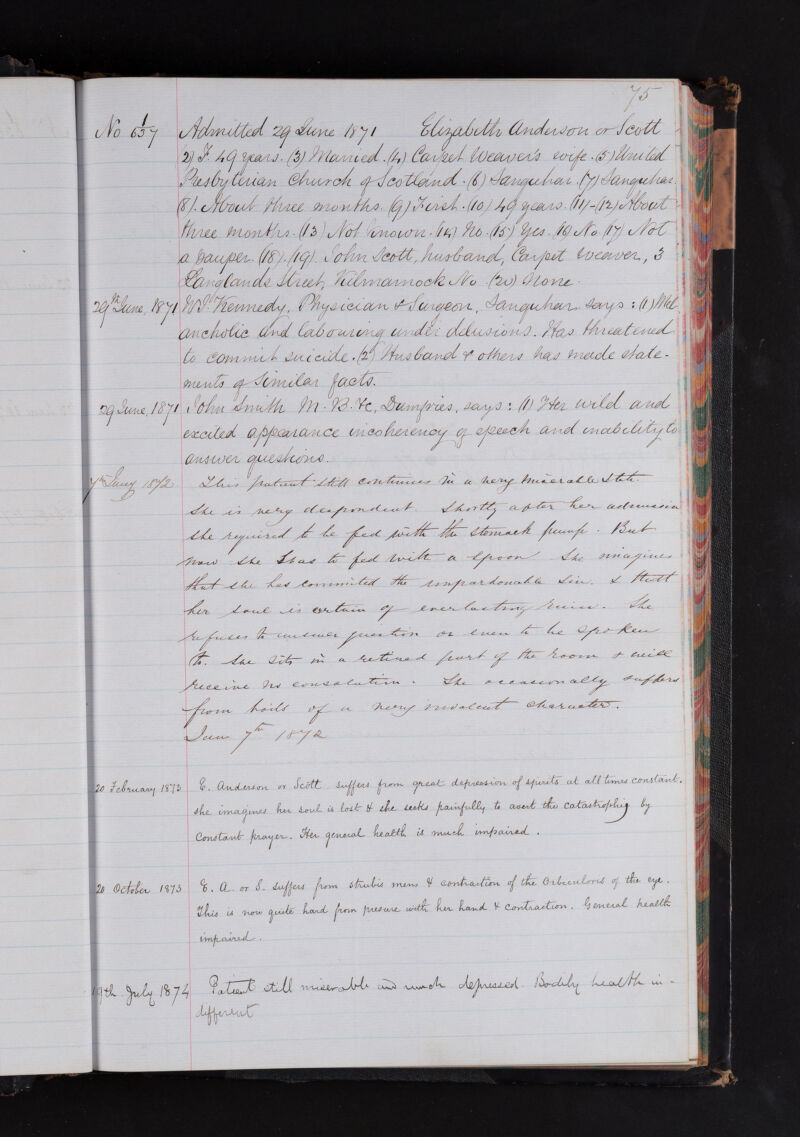 75
No 6 1/57 Admitted 29 June 1871 Elizabeth Anderson or Scott
2) F. 49 years. (3) Married. (4) Carpet Weaver's wife. (5) United
Presbyterian Church of Scotland. (6) Sanquhar. (7) Sanquhar.
(8). About three months. (9) First. (10) 49 years. (11)-(12) About
three months. (13) Not known. (14) No. (15) Yes. 16 No. (17) Not
a pauper. (18). (19). John Scott, husband, Carpet Weaver, 3
Langlands Street, Kilmarnock No. (20) None.
29th June, 1871 Kennedy, Physician & Surgeon, Sanquhar says: (1) Mel
ancholic and labouring under delusions. Has threatened
to commit suicide. (2) Husband & others has made state-
ments of similar facts.
29 June, 1871 John Smith M.B. &c, Dumfries, says: (1) Her wild and
excited appearance incoherency of speech and inability to
answer questions.
7th Jany 1872 This patient still continues in a very miserable state.
She is very despondent. Shortly after her admission
she required to be fed with the stomach pump. But
now she has to fed with a spoon She imagines
that she has committed the unpardonable Sin. & that
her soul is certain of everlasting ruin. She
refuses to answer question or even to be spoken
to. She sits in a retired part of the room & will
receive no consolation. She occasionally suffers
from boils of a very indolent character.
Jan 7th 1872
20 February 1873 E. Anderson or Scott suffers from great depression of spirits at all times constant.
she imagines her soul is lost & she seeks painfully to avert the catastrophy by
constant prayer. Her general health is much impaired.
20 October 1873 E. A. or S. suffers from & contraction of the Orbicularis of the eye.
This is now quite hard from presure with her hand & contraction. General health
impaired.
19th July 1874 Patient still miserable and much depressed. Bodily health in-
different